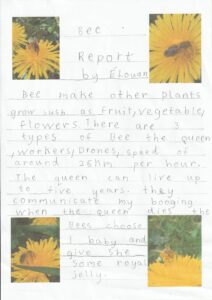 Bee
Report
by Elouan
Bee make other plants
grow such as fruit, vegetable,
flowers There are 3
types of Bee the queen
, workers, Drones, speed of
around 25Hm per hour.
The queen can live up
to five years. they
communicate my bonging
when the queen dies the
Bees choose
1 baby and
give she
some royal
jelly.